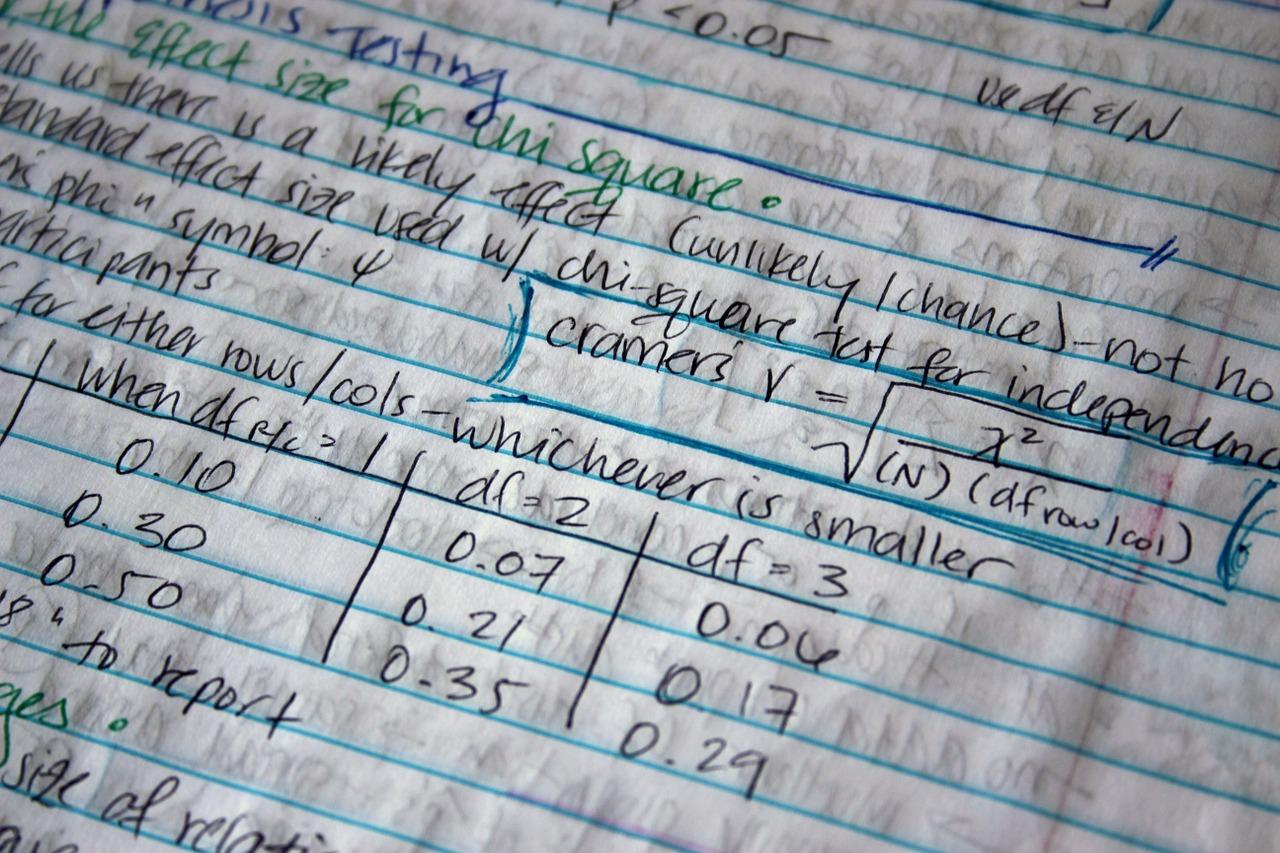 p < 0.05
Testing
use df & N
the effect size for chi square.
us there is a likely effect (unlikely / chance) - not
standard effect size used w/ chi-square test for independence
phi" symbol: φ
participants
cramer's V = √ x² / (N) (df row/col)
for either rows/cols - whichever is smaller
when df R/C = 1 | df = 2 | df = 3
0.10 | 0.07 | 0.06
0.30 | 0.21 | 0.17
0.50 | 0.35 | 0.29
" to report
size of